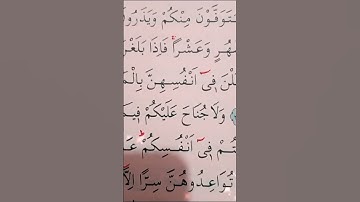 يُتَوَفَّوْنَ مِنْكُمْ وَيَذَرُو
هُرٍ وَعَشْراًۚ فَاِذَا بَلَغْنَ
لْنَ ف۪ٓي اَنْفُسِهِنَّ بِالْمَ
وَلَا جُنَاحَ عَلَيْكُمْ ف۪يمَا
تُمْ ف۪ٓي اَنْفُسِكُمْۜ عَ
تُوَاعِدُوهُنَّ سِرًّا اِلَّٓا